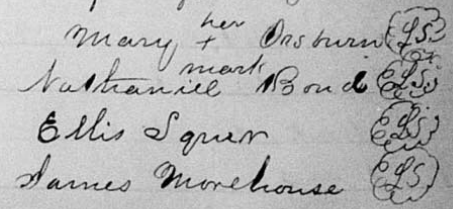 Mary her + mark Orsburn LS
Nathaniell Bond LS
Ellis Squer LS
James Morehouse LS